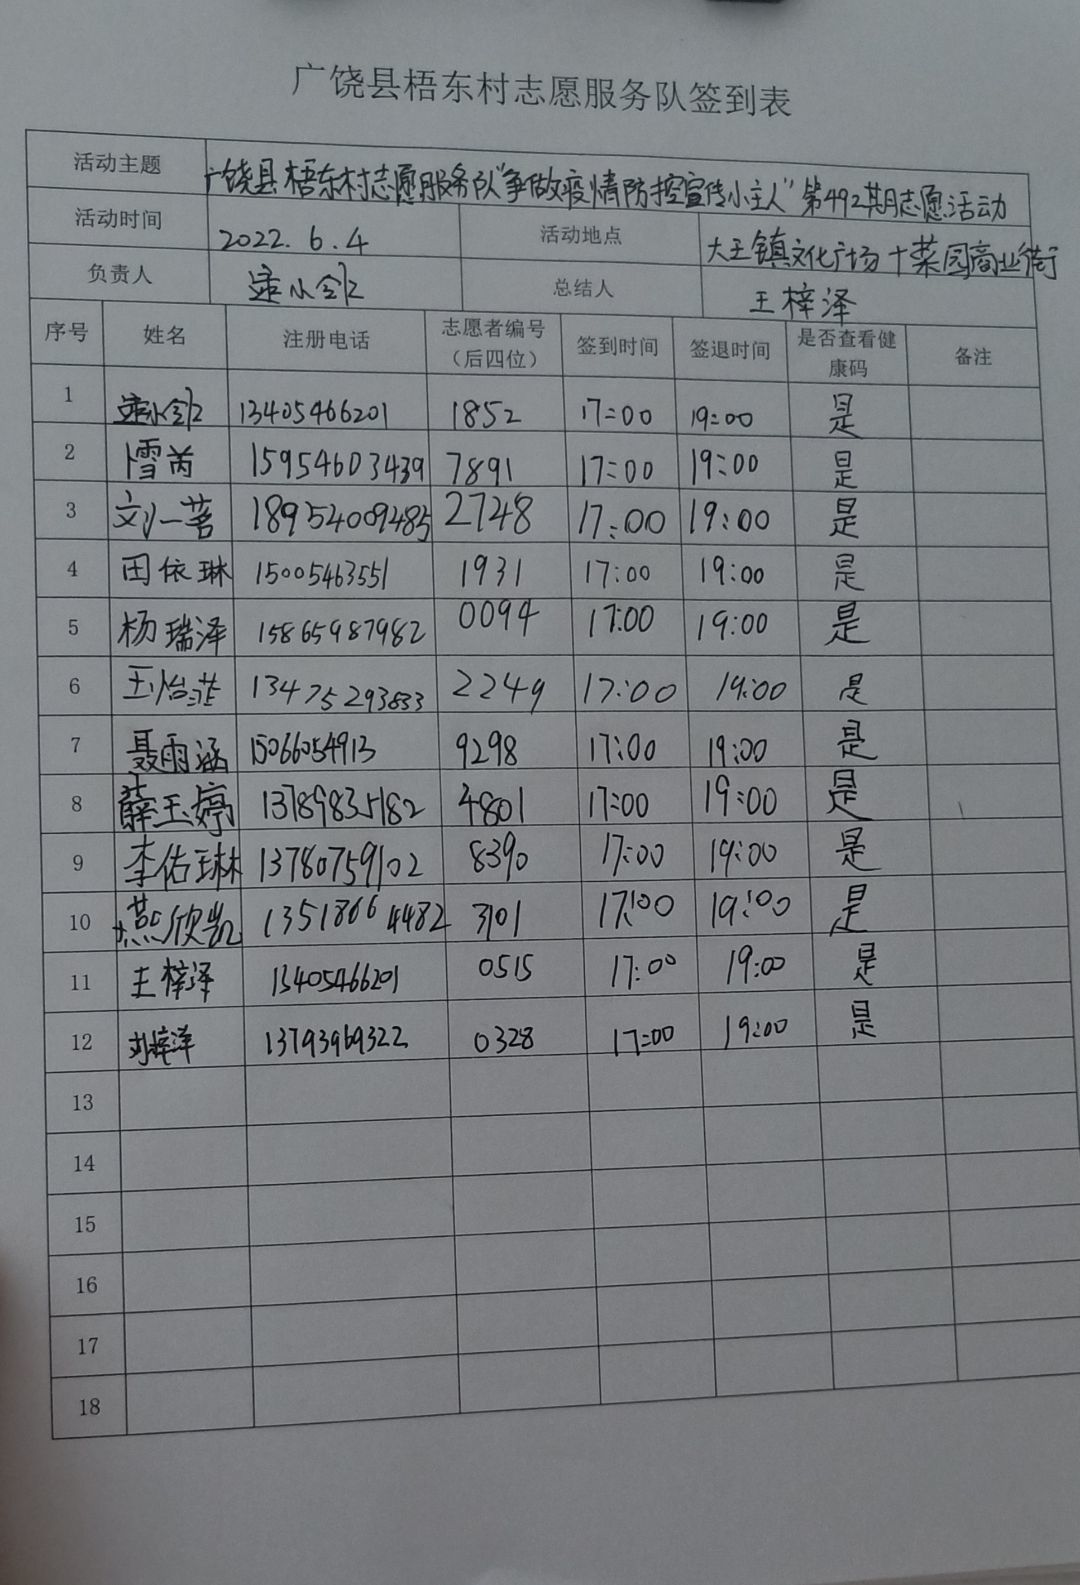 广饶县梧东村志愿服务队签到表
活动主题 广饶县梧东村志愿服务队"争做疫情防控宣传小主人"第492期志愿活动
活动时间 2022.6.4 活动地点 大王镇文化广场十菜园商业街
负责人 总结人 王梓泽
序号 姓名 注册电话 志愿者编号（后四位） 签到时间 签退时间 是否查看健康码 备注
1 13405466201 1852 17:00 19:00 是
2 15954603439 7891 17:00 19:00 是
3 刘一茗 18954009485 2748 17:00 19:00 是
4 田依琳 15005463551 1931 17:00 19:00 是
5 杨瑞泽 15865987982 0094 17:00 19:00 是
6 2249 17:00 19:00 是
7 聂雨涵 15066054913 9298 17:00 19:00 是
8 薛玉婷 13789835182 4801 17:00 19:00 是
9 李佑琳 13780759102 8390 17:00 19:00 是
10 燕欣凯 13518664482 3101 17:00 19:00 是
11 王梓泽 13405466201 0515 17:00 19:00 是
12 刘梓泽 13793969322 0328 17:00 19:00 是
13
14
15
16
17
18